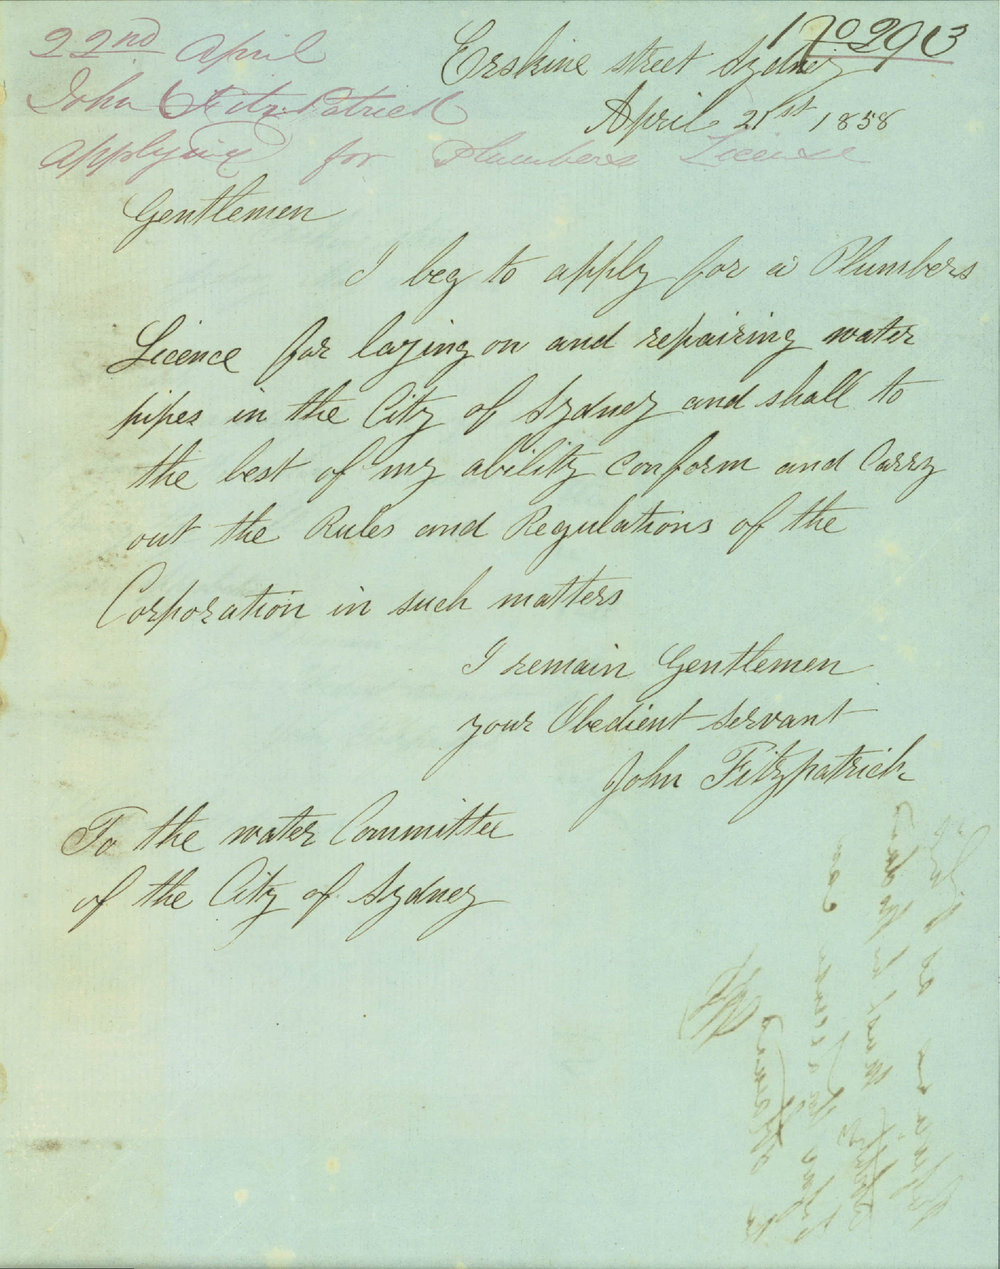 170293
22nd April
John Fitz.Patrick
applying for Plumbers License
Erskine street Sydney
April 21st 1858
Gentlemen
I beg to apply for a Plumbers
Licence for laying on and repairing water
pipes in the City of Sydney and shall to
the best of my ability Conform and Carry
out the Rules and Regulations of the
Corporation in such matters
I remain Gentlemen
your Obedient Servant
John Fitzpatrick
To the water Committee
of the City of Sydney